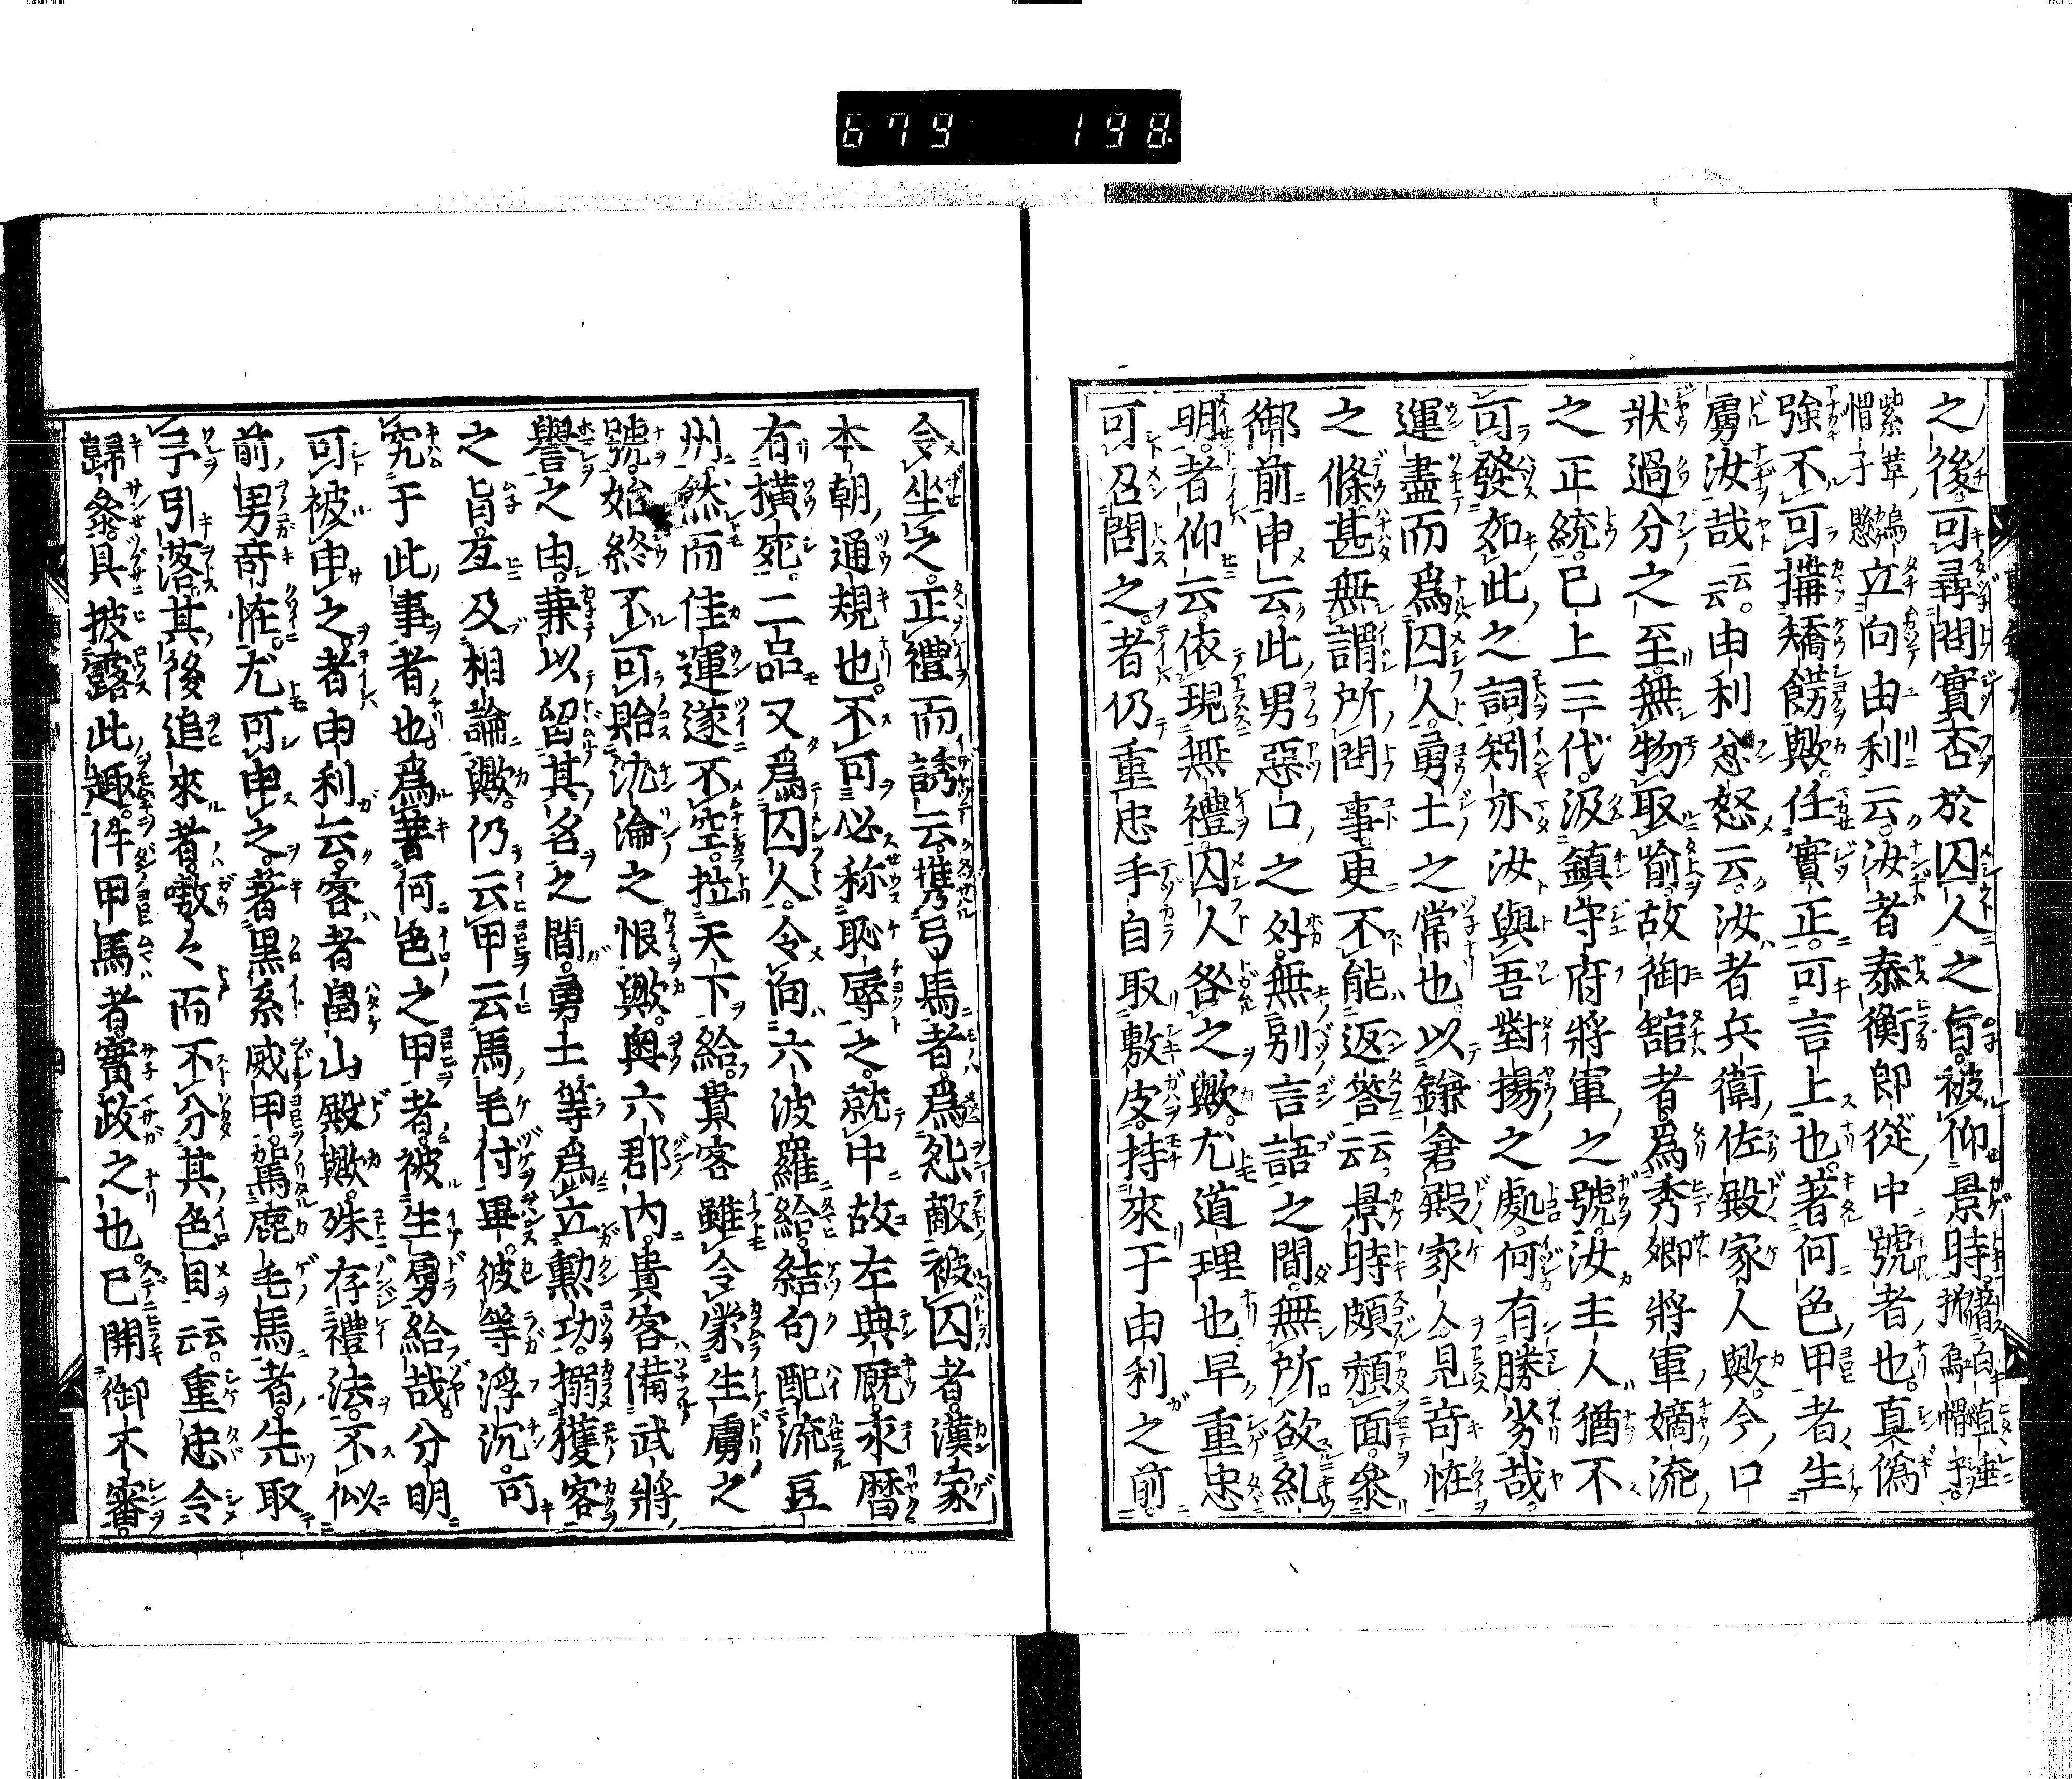 679 198
之後可尋問實否於囚人之旨被仰景時著白直垂折烏帽子
紫革烏帽子懸立向由利云汝者泰衡郎從中號者也真偽
強不可搆矯餝歟任實正可言上也著何色甲者生
虜汝哉云云由利忿怒云汝者兵衛佐殿家人歟今口
狀過分之至無物取喻故御舘者爲秀郷將軍嫡流
之正統已上三代汲鎮守府將軍之號汝主人猶不
可發如此之詞矧亦汝與吾對揚之處何有勝劣哉
運盡而爲囚人勇士之常也以鎌倉殿家人見奇恠
之條甚無謂所問事更不能返答云云景時頗赬面參
御前申云此男惡口之外無別言語之間無所欲糺
明者仰云依現無禮囚人咎之歟尤道理也早重忠
可召問之者仍重忠手自取敷皮持來于由利之前
令坐之正禮而誘云携弓馬者爲怨敵被囚者漢家
本朝通規也不可必称恥辱之就中故左典厩永曆
有撗死二品又爲囚人令向六波羅給結句配流豆
州然而佳運遂不空拉天下給貴客雖令蒙生虜之
號始終不可貽沈淪之恨歟奥六郡内貴客備武將
譽之由兼以留其名之間勇士等爲立勲功搦獲客
之旨互及相論歟仍云甲云馬毛付畢彼等浮沉可
究于此事者也爲著何色之甲者被生虜給哉分明
可被申之者由利云客者畠山殿歟殊存禮法不似
前男奇恠尤可申之著黒糸威甲駕鹿毛馬者先取
予引落其後追來者嗷々而不分其色目云云重忠令
歸參具披露此趣件甲馬者實政之也已開御不審